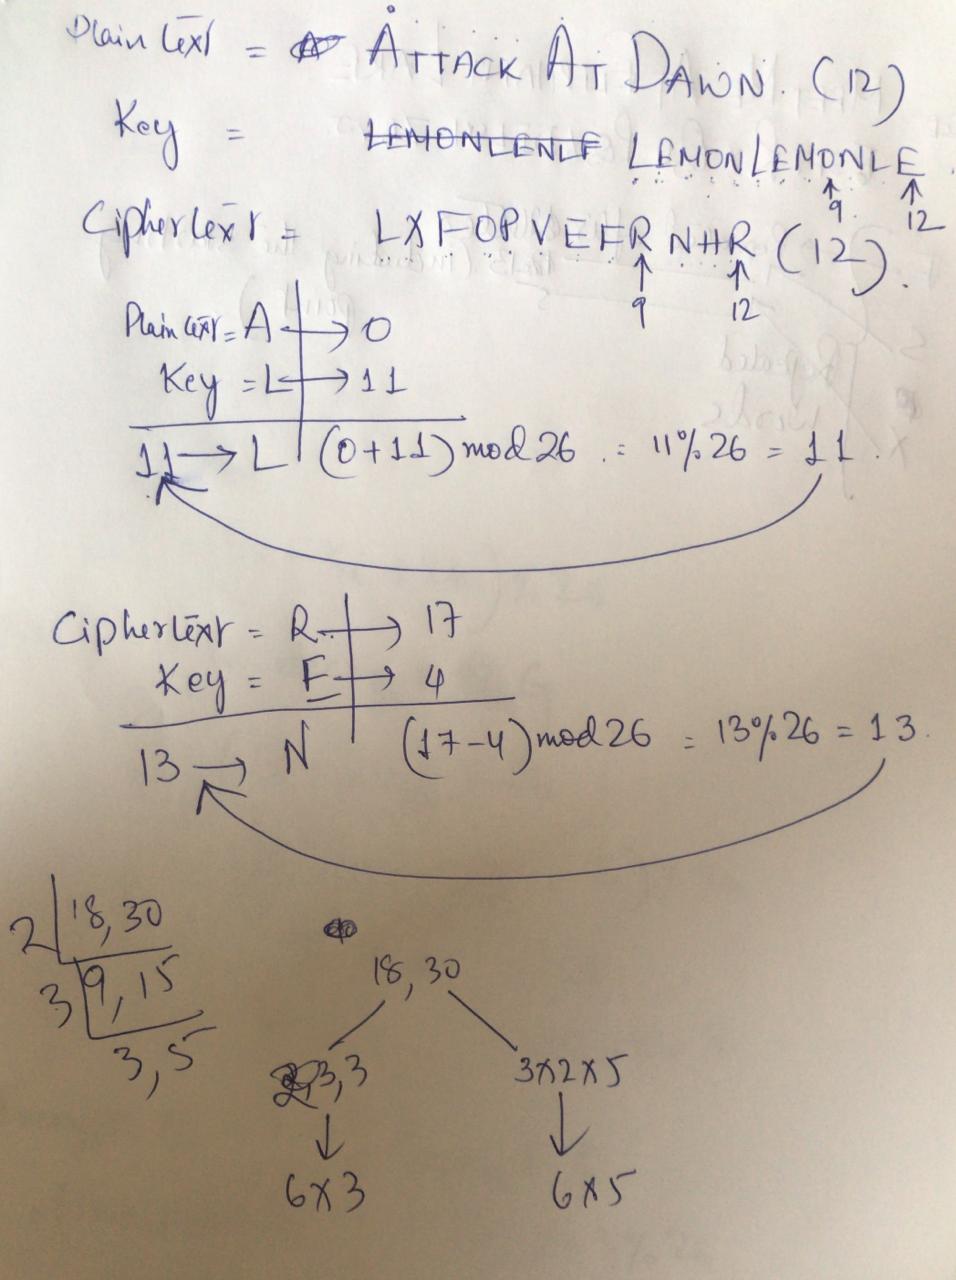 Plain text = ATTACK AT DAWN. (12)
Key = LEMONLENLE LEMONLEMONLE
9 12
Ciphertext = LXFOPVEFRNHR (12).
9 12
Plain text = A → 0
Key = L → 11
11 → L (0+11) mod 26 = 11%26 = 11.
Ciphertext = R → 17
Key = E → 4
13 → N (17-4) mod 26 = 13%26 = 13.
2 18, 30
3 9, 15
3, 5
18, 30
2,3,3 3×2×5
6×3 6×5